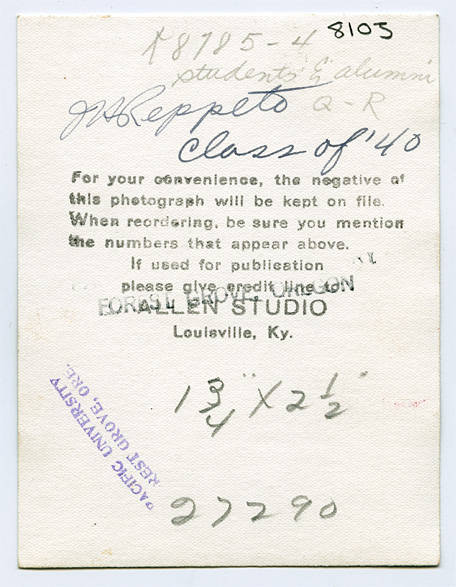 8785-4 8105
students & alumni
Reppeto Q-R
class of '40
For your convenience, the negative of
this photograph will be kept on file.
When reordering, be sure you mention
the numbers that appear above.
If used for publication
please give credit line to:
FOREST GROVE, OREGON
ALLEN STUDIO
Louisville, Ky.
1 3/4" X 2 1/2"
PACIFIC UNIVERSITY
REST GROVE, ORE.
27290